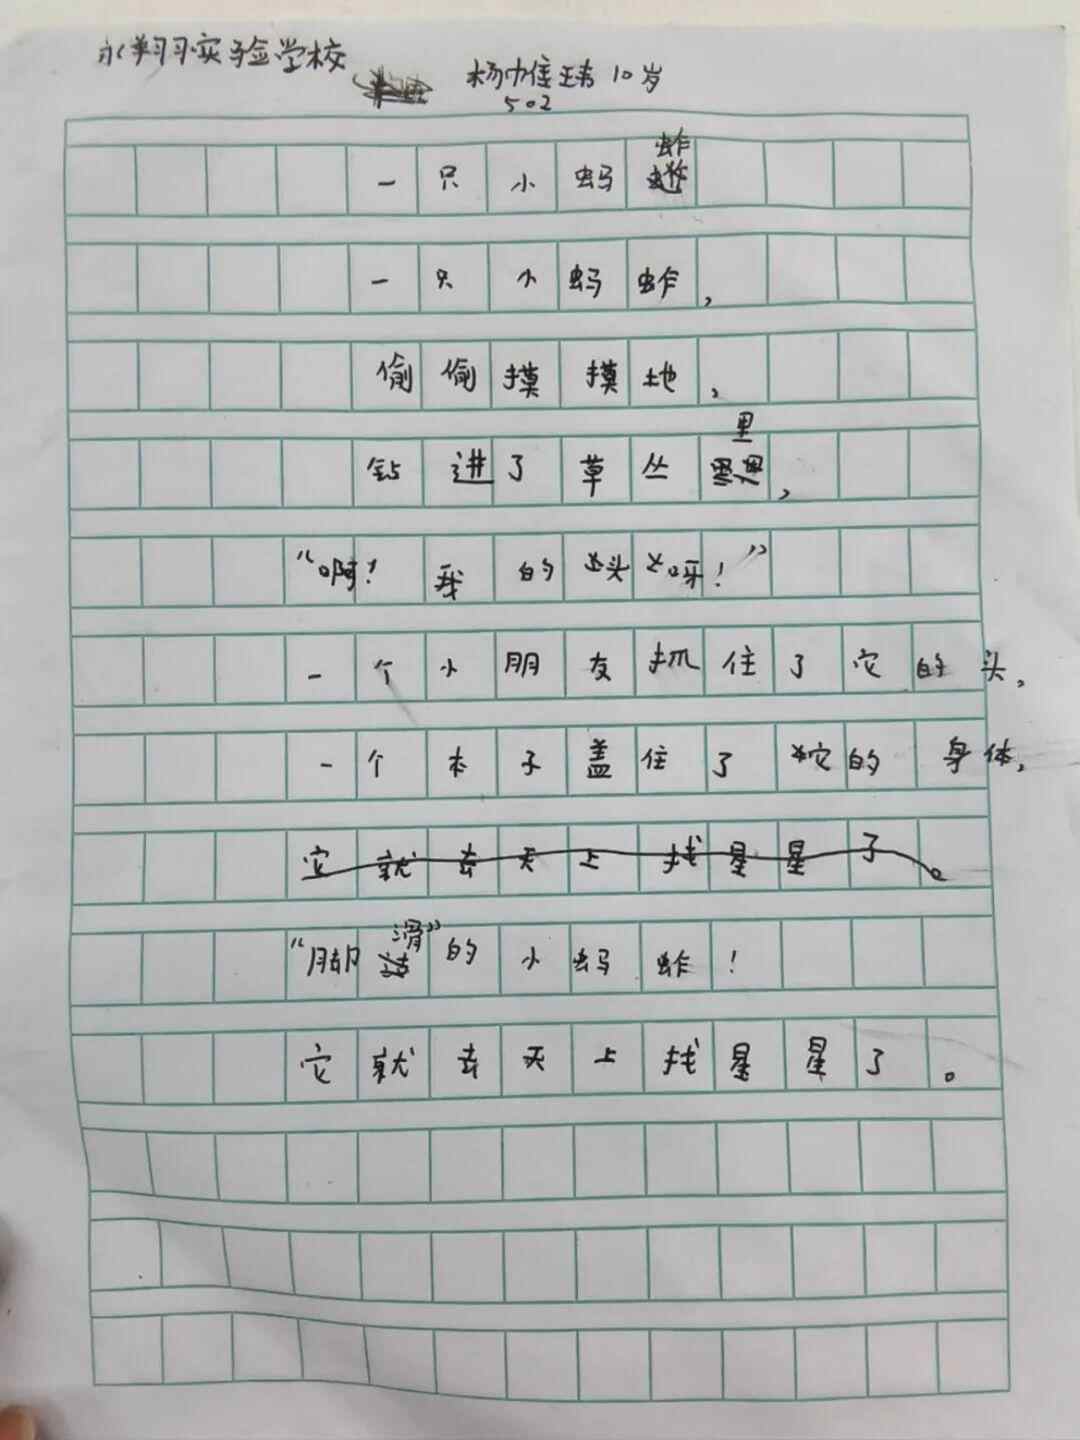 永翔实验学校
杨巾住玮 10岁
502
一只小蚂蚱
一只小蚂蚱，
偷偷摸摸地，
钻进了草丛里，
“啊！我的头呀！”
一个小朋友抓住了它的头，
一个本子盖住了它的身体，
它就去天上找星星了。
“脚滑”的小蚂蚱！
它就去天上找星星了。